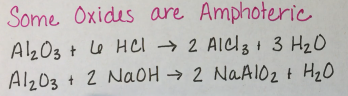 Some Oxides are Amphoteric
Al₂O₃ + 6 HCl → 2 AlCl₃ + 3 H₂O
Al₂O₃ + 2 NaOH → 2 NaAlO₂ + H₂O